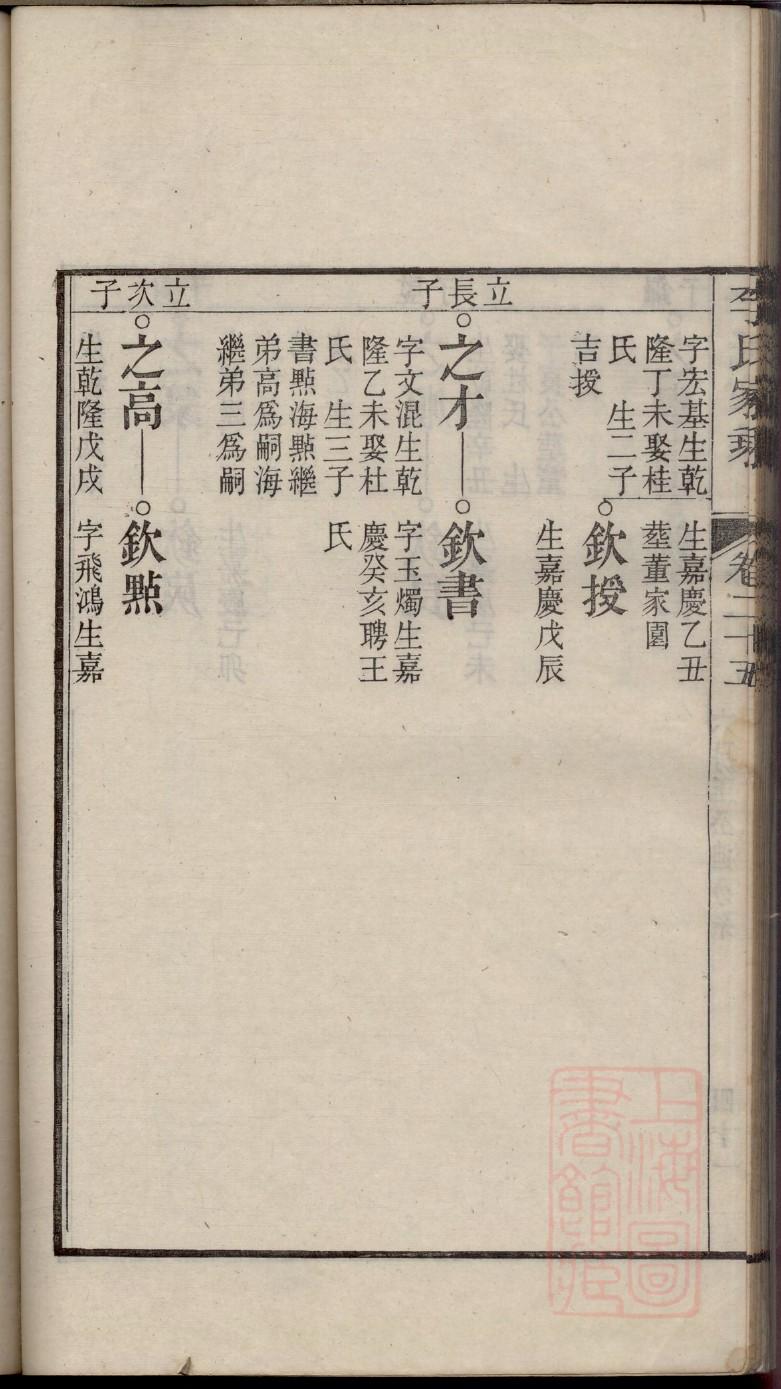 李氏家乘
卷二十五
字宏基生乾
隆丁未娶桂
氏　生二子
吉授
生嘉慶乙丑
塟董家園
欽授
生嘉慶戊辰
立長子
之才
字文混生乾
隆乙未娶杜
氏　生三子
書㸃海㸃繼
弟高爲嗣海
繼弟三爲嗣
欽書
字玉燭生嘉
慶癸亥聘王
氏
立次子
之高
生乾隆戊戌
欽㸃
字飛鴻生嘉
上海圖
書館藏